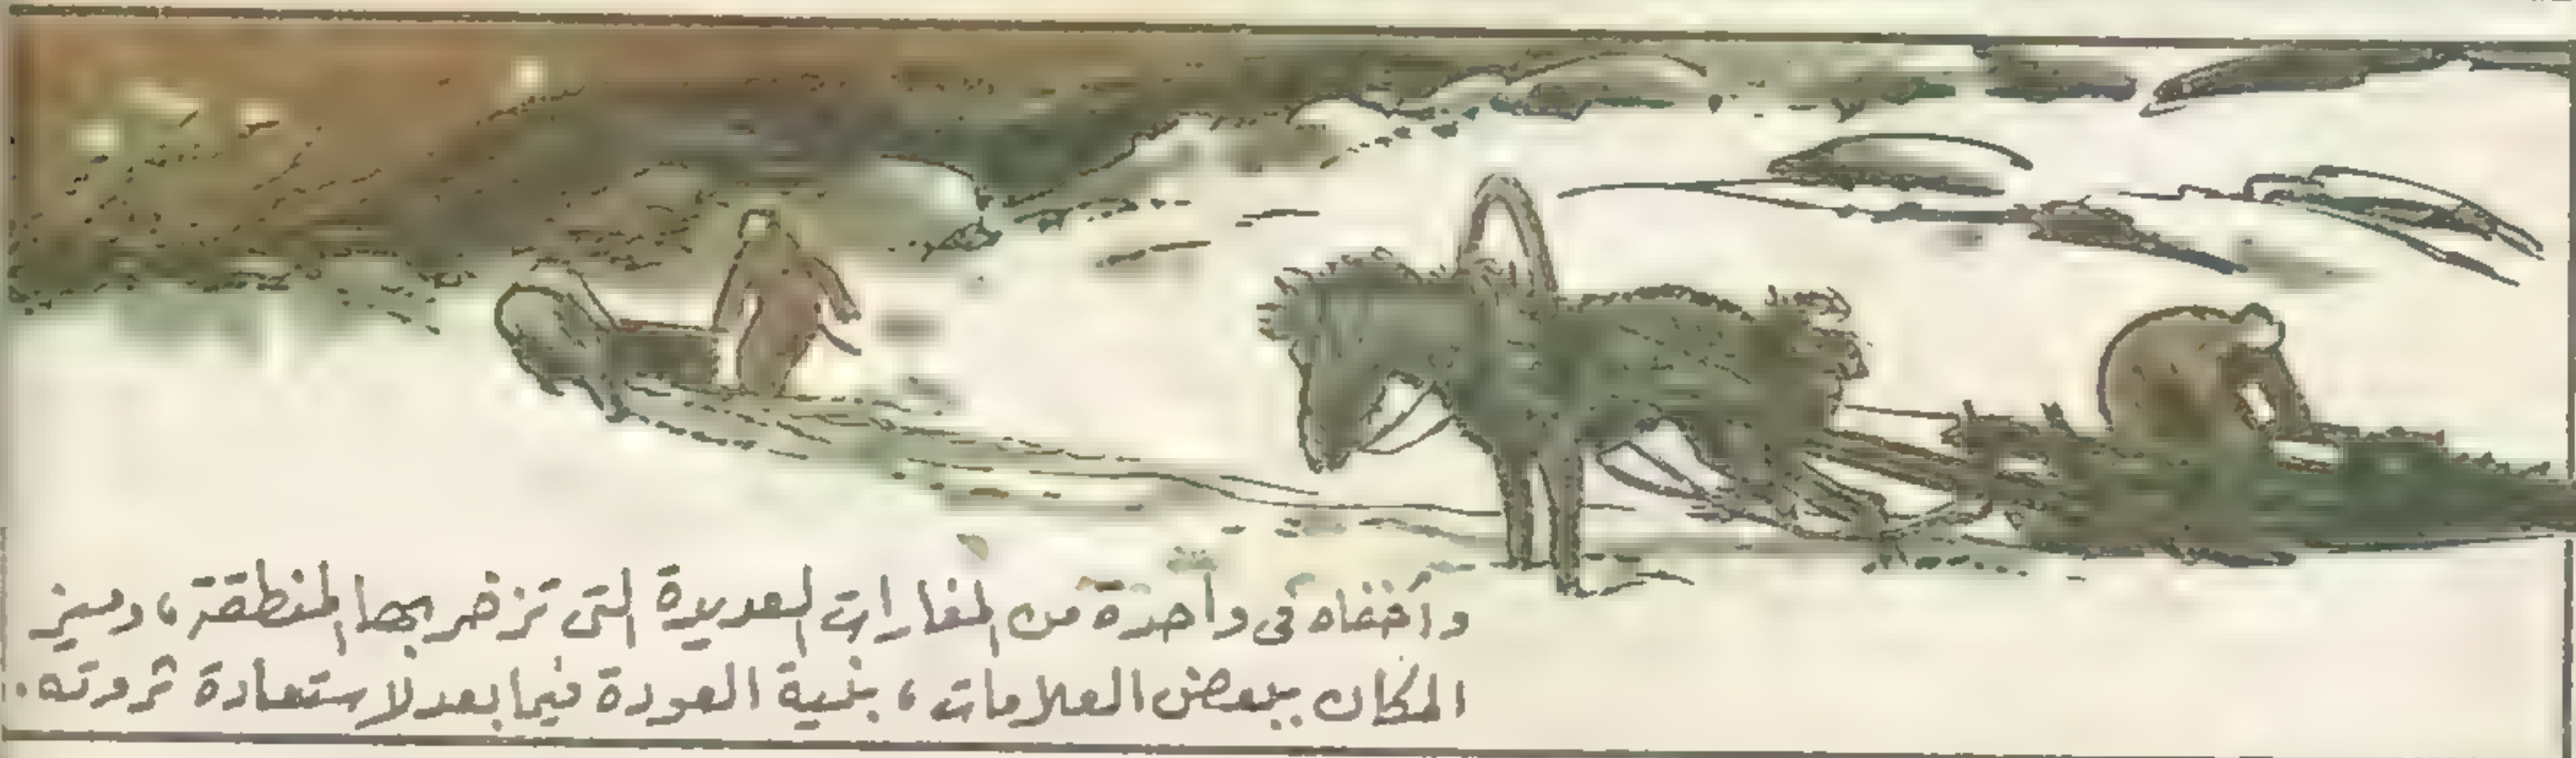 وأخفاه فى واحدة من المغارات العديدة التى تزخر بها المنطقة، وميز
المكان ببعض العلامات، بنية العودة فيما بعد لاستعادة ثروته..